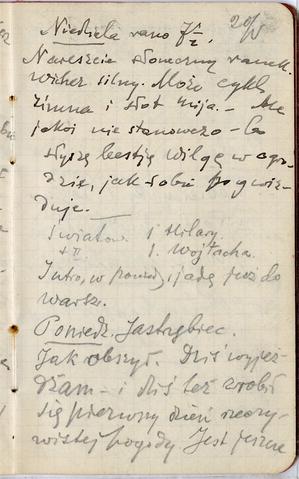 Niedziela rano 7 1/2. 20/V
Nareszcie słoneczny ranek.
Wicher silny. Może cykl
zimna i słot mija. - Ale
jakoś nie stanowczo - bo
słyszę bestję wilgę w ogro-
dzie, jak sobie pogwiz-
duje.
Światow. 1 Hilary
1. Wojtacha.
Jutro, w poniedz, jadę już do
Warsz.
Poniedz. Jastrzębiec.
Jak obszył. Dziś wyjeż-
dżam - i dziś też zrobił
się pierwszy dzień rzeczy-
wistej pogody. Jest jeszcze